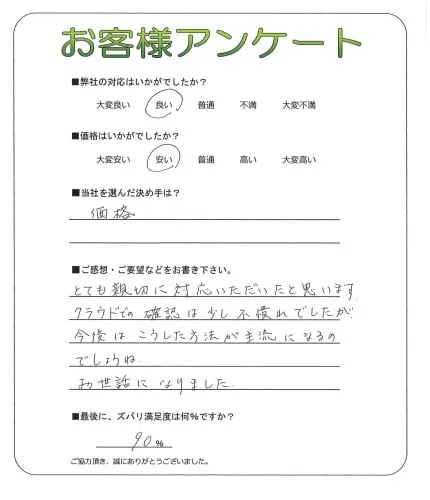 お客様アンケート
■弊社の対応はいかがでしたか?
大変良い 良い 普通 不満 大変不満
■価格はいかがでしたか?
大変安い 安い 普通 高い 大変高い
■当社を選んだ決め手は?
価格
■ご感想・ご要望などをお書き下さい。
とても親切に対応いただいたと思います。
クラウドでの確認は少し不慣れでしたが
今後はこうした方法が主流になるの
でしょうね。
お世話になりました。
■最後に、ズバリ満足度は何%ですか?
90%
ご協力頂き、誠にありがとうございました。